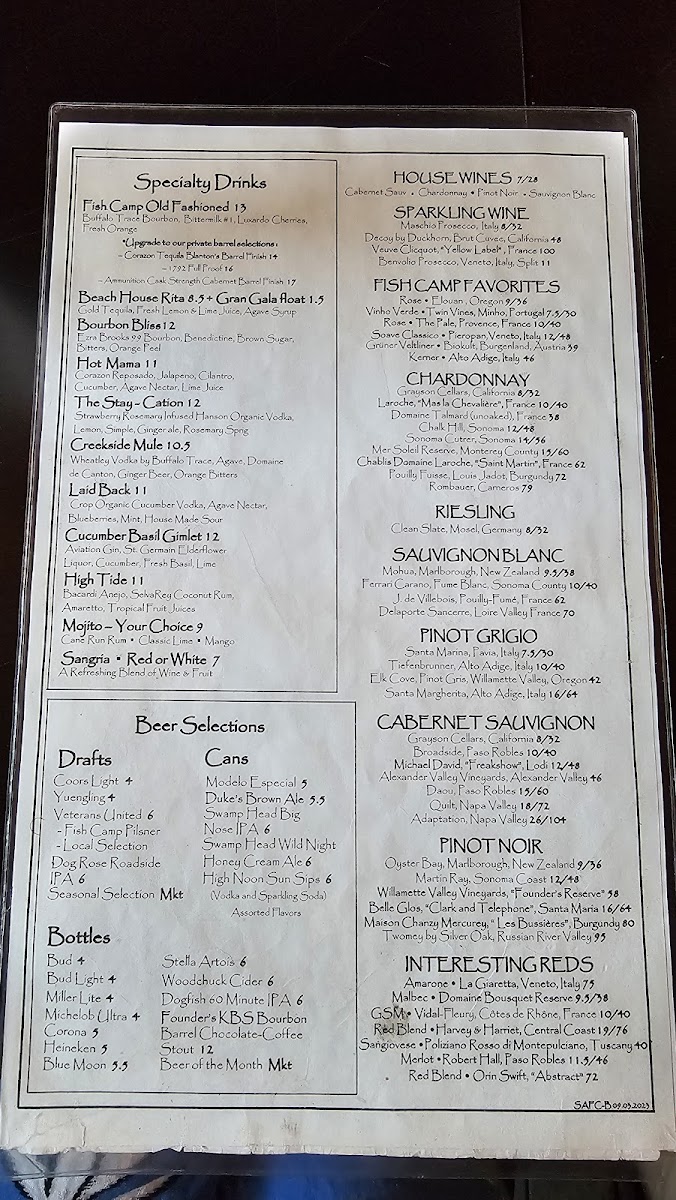 Specialty Drinks
Fish Camp Old Fashioned 13
Buffalo Trace Bourbon, Bittermilk #1, Luxardo Cherries,
Fresh Orange
*Upgrade to our private barrel selections:
– Corazon Tequila Blanton's Barrel Finish 14
– 1792 Full Proof 16
– Ammunition Cask Strength Cabernet Barrel Finish 17
Beach House Rita 8.5 + Gran Gala float 1.5
Gold Tequila, Fresh Lemon & Lime Juice, Agave Syrup
Bourbon Bliss 12
Ezra Brooks 99 Bourbon, Benedictine, Brown Sugar,
Bitters, Orange Peel
Hot Mama 11
Corazon Reposado, Jalapeno, Cilantro,
Cucumber, Agave Nectar, Lime Juice
The Stay - Cation 12
Strawberry Rosemary Infused Hanson Organic Vodka,
Lemon, Simple, Ginger ale, Rosemary Sprig
Creekside Mule 10.5
Wheatley Vodka by Buffalo Trace, Agave, Domaine
de Canton, Ginger Beer, Orange Bitters
Laid Back 11
Crop Organic Cucumber Vodka, Agave Nectar,
Blueberries, Mint, House Made Sour
Cucumber Basil Gimlet 12
Aviation Gin, St. Germain Elderflower
Liquor, Cucumber, Fresh Basil, Lime
High Tide 11
Bacardi Anejo, SelvaRey Coconut Rum,
Amaretto, Tropical Fruit Juices
Mojito – Your Choice 9
Cane Run Rum • Classic Lime • Mango
Sangria • Red or White 7
A Refreshing Blend of Wine & Fruit
Beer Selections
Drafts
Coors Light 4
Yuengling 4
Veterans United 6
- Fish Camp Pilsner
- Local Selection
Dog Rose Roadside
IPA 6
Seasonal Selection Mkt
Cans
Modelo Especial 5
Duke's Brown Ale 5.5
Swamp Head Big
Nose IPA 6
Swamp Head Wild Night
Honey Cream Ale 6
High Noon Sun Sips 6
(Vodka and Sparkling Soda)
Assorted Flavors
Bottles
Bud 4
Bud Light 4
Miller Lite 4
Michelob Ultra 4
Corona 5
Heineken 5
Blue Moon 5.5
Stella Artois 6
Woodchuck Cider 6
Dogfish 60 Minute IPA 6
Founder's KBS Bourbon
Barrel Chocolate-Coffee
Stout 12
Beer of the Month Mkt
HOUSE WINES 7/28
Cabernet Sauv • Chardonnay • Pinot Noir • Sauvignon Blanc
SPARKLING WINE
Maschio Prosecco, Italy 8/32
Decoy by Duckhorn, Brut Cuvee, California 48
Veuve Clicquot, "Yellow Label", France 100
Benvolio Prosecco, Veneto, Italy, Split 11
FISH CAMP FAVORITES
Rose • Elouan, Oregon 9/36
Vinho Verde • Twin Vines, Minho, Portugal 7.5/30
Rose • The Pale, Provence, France 10/40
Soave Classico • Pieropan, Veneto, Italy 12/48
Grüner Veltliner • Biokult, Burgenland, Austria 39
Kerner • Alto Adige, Italy 46
CHARDONNAY
Grayson Cellars, California 8/32
Laroche, "Mas la Chevalière", France 10/40
Domaine Talmard (unoaked), France 38
Chalk Hill, Sonoma 12/48
Sonoma Cutrer, Sonoma 14/56
Mer Soleil Reserve, Monterey County 15/60
Chablis Domaine Laroche, "Saint Martin", France 62
Pouilly Fuisse, Louis Jadot, Burgundy 72
Rombauer, Carneros 79
RIESLING
Clean Slate, Mosel, Germany 8/32
SAUVIGNON BLANC
Mohua, Marlborough, New Zealand 9.5/38
Ferrari Carano, Fume Blanc, Sonoma County 10/40
J. de Villebois, Pouilly-Fumé, France 62
Delaporte Sancerre, Loire Valley France 70
PINOT GRIGIO
Santa Marina, Pavia, Italy 7.5/30
Tiefenbrunner, Alto Adige, Italy 10/40
Elk Cove, Pinot Gris, Willamette Valley, Oregon 42
Santa Margherita, Alto Adige, Italy 16/64
CABERNET SAUVIGNON
Grayson Cellars, California 8/32
Broadside, Paso Robles 10/40
Michael David, "Freakshow", Lodi 12/48
Alexander Valley Vineyards, Alexander Valley 46
Daou, Paso Robles 15/60
Quilt, Napa Valley 18/72
Adaptation, Napa Valley 26/104
PINOT NOIR
Oyster Bay, Marlborough, New Zealand 9/36
Martin Ray, Sonoma Coast 12/48
Willamette Valley Vineyards, "Founder's Reserve" 58
Belle Glos, "Clark and Telephone", Santa Maria 16/64
Maison Chanzy Mercurey, "Les Bussières", Burgundy 80
Twomey by Silver Oak, Russian River Valley 95
INTERESTING REDS
Amarone • La Giaretta, Veneto, Italy 75
Malbec • Domaine Bousquet Reserve 9.5/38
GSM • Vidal-Fleury, Côtes de Rhône, France 10/40
Red Blend • Harvey & Harriet, Central Coast 19/76
Sangiovese • Poliziano Rosso di Montepulciano, Tuscany 40
Merlot • Robert Hall, Paso Robles 11.5/46
Red Blend • Orin Swift, "Abstract" 72
SAFC-B 09.03.2023